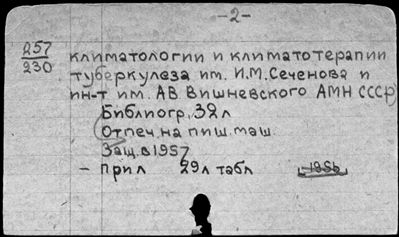 -2-
257
230
климатологии и климатотерапии
туберкулеза им. И.М. Сеченова и
ин-т им. АВ. Вишневского АМН СССР)
Библиогр, 32 л
Отпеч. на пиш. маш.
Защ. в 1957
- Прил 29 л табл